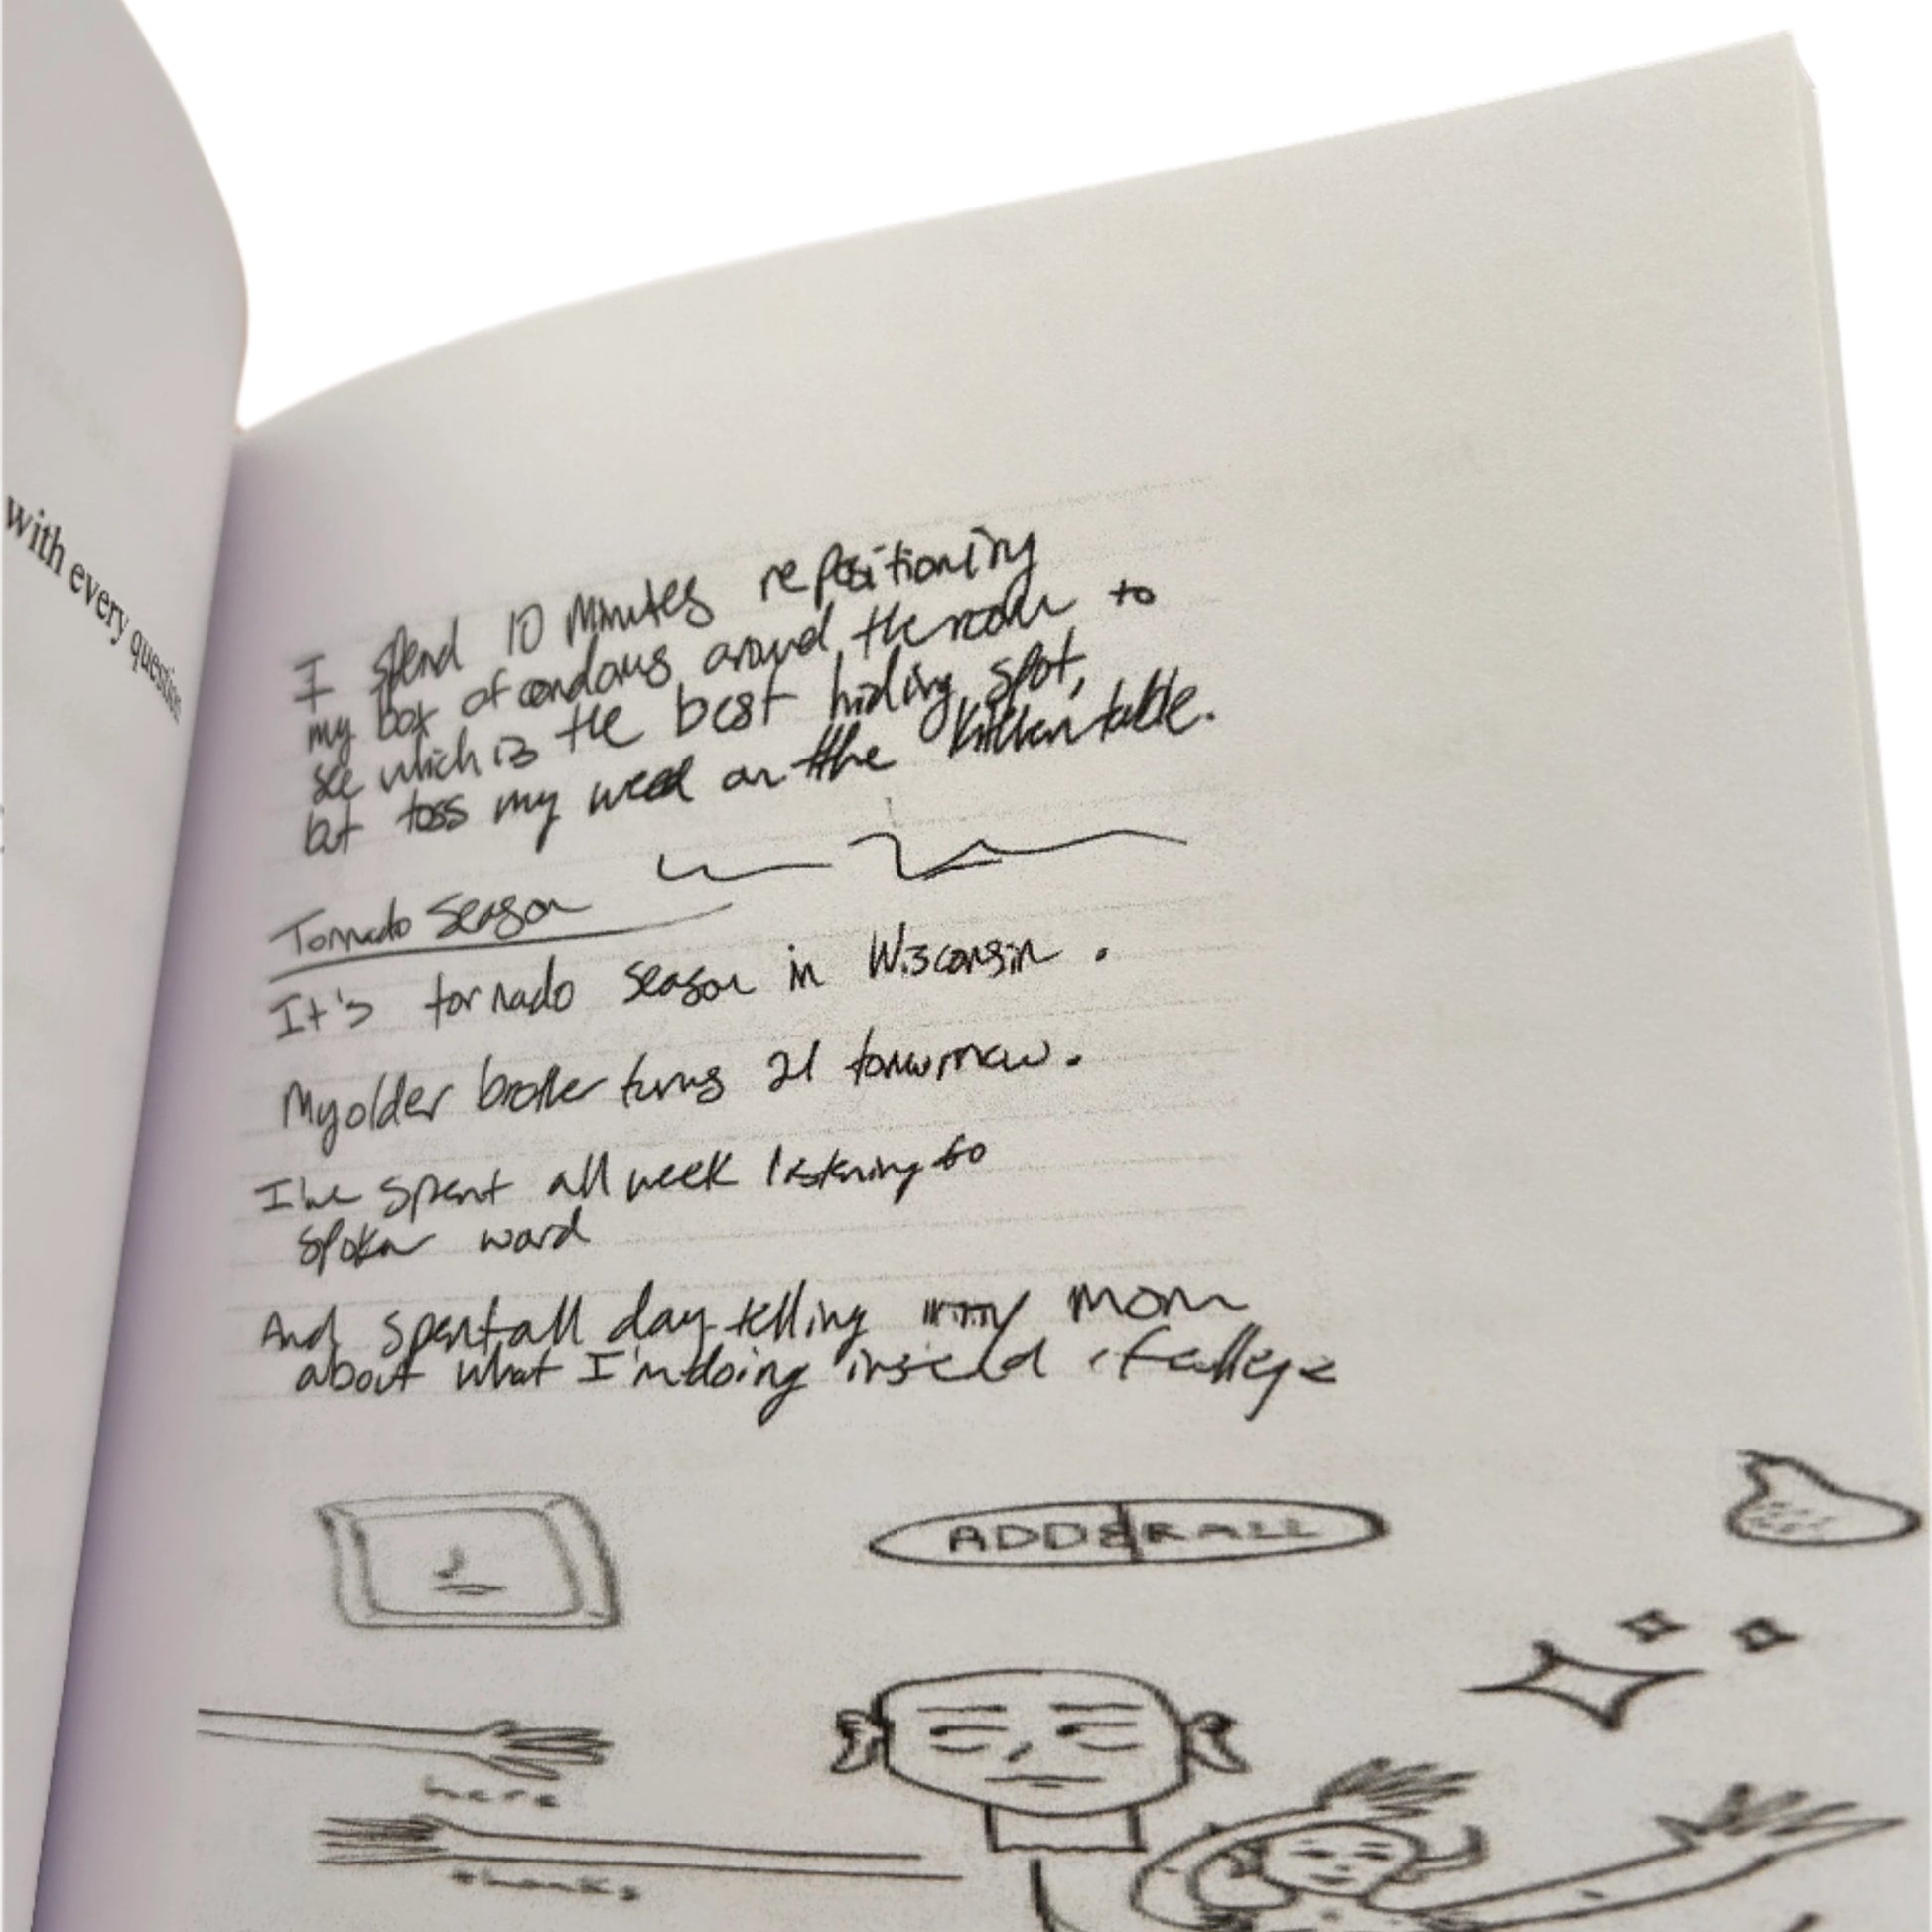 with every question
I spend 10 Minutes repositioning
my box of condoms around the room to
see which is the best hiding spot,
but toss my weed on the kitchen table.
Tornado Season
It's tornado season in Wisconsin.
My older brother turns 21 tomorrow.
I've spent all week listening to
spoken word
And spent all day telling my mom
about what I'm doing instead of college
ADDERALL
here
thanks